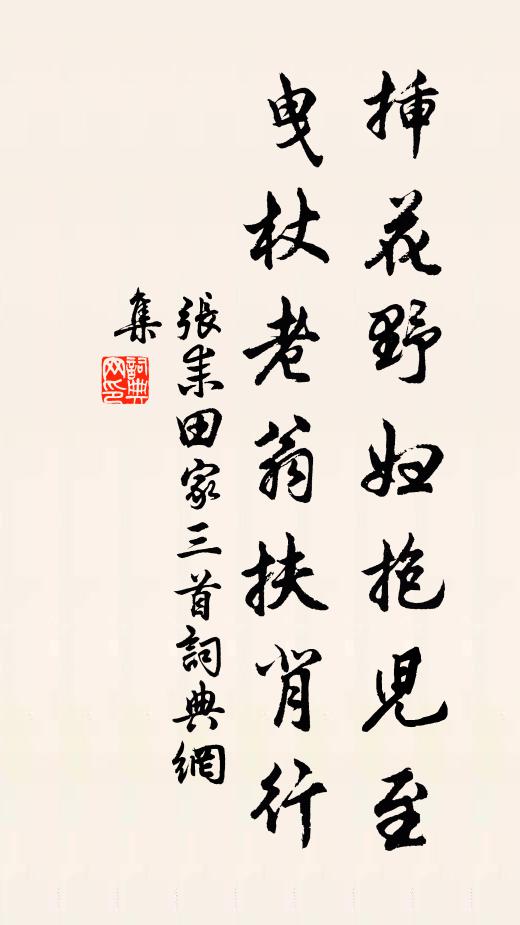 挿花野妇抱児至
曳杖老翁扶背行
張耒田家三首詞典網
集
詞典
网印